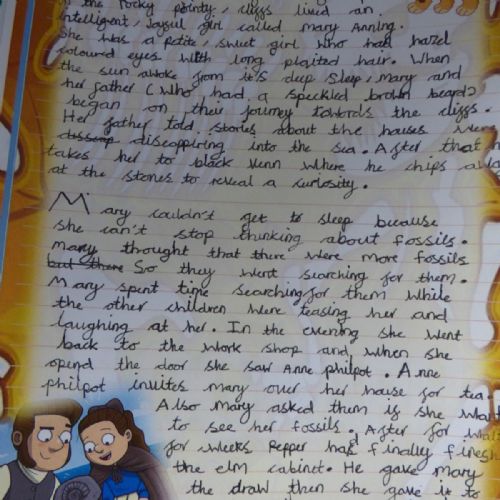 In the rocky pointy, cliffs lived an
intelligent, Joysul girl called mary Anning.
She was a petite, sweet girl who had hazel
coloured eyes with long plaited hair. When
the sun awoke from it's deep sleep, mary and
her father (who had a speckled brown beard)
began on their journey towards the cliffs.
Her father told stories about the houses were
disseap diseappiring into the sea. After that h
takes her to black Venn where he chips awa
at the stones to reveal a curiosity.
Mary couldn't get to sleep because
she can't stop thinking about fossils.
mary thought that there were more fossils
but there So they went searching for them.
Mary spent time searching for them while
the other children were teasing her and
laughing at her. In the evening she went
back to the work shop and when she
opend the door she saw Anne philpot. Anne
philpot invites mary over her house for tea.
Also Mary asked them if she wa
to see her fossils. After for wait
for weeks Pepper had finally finesh
the elm cabinet. He gave mary
the draw then she gave it to